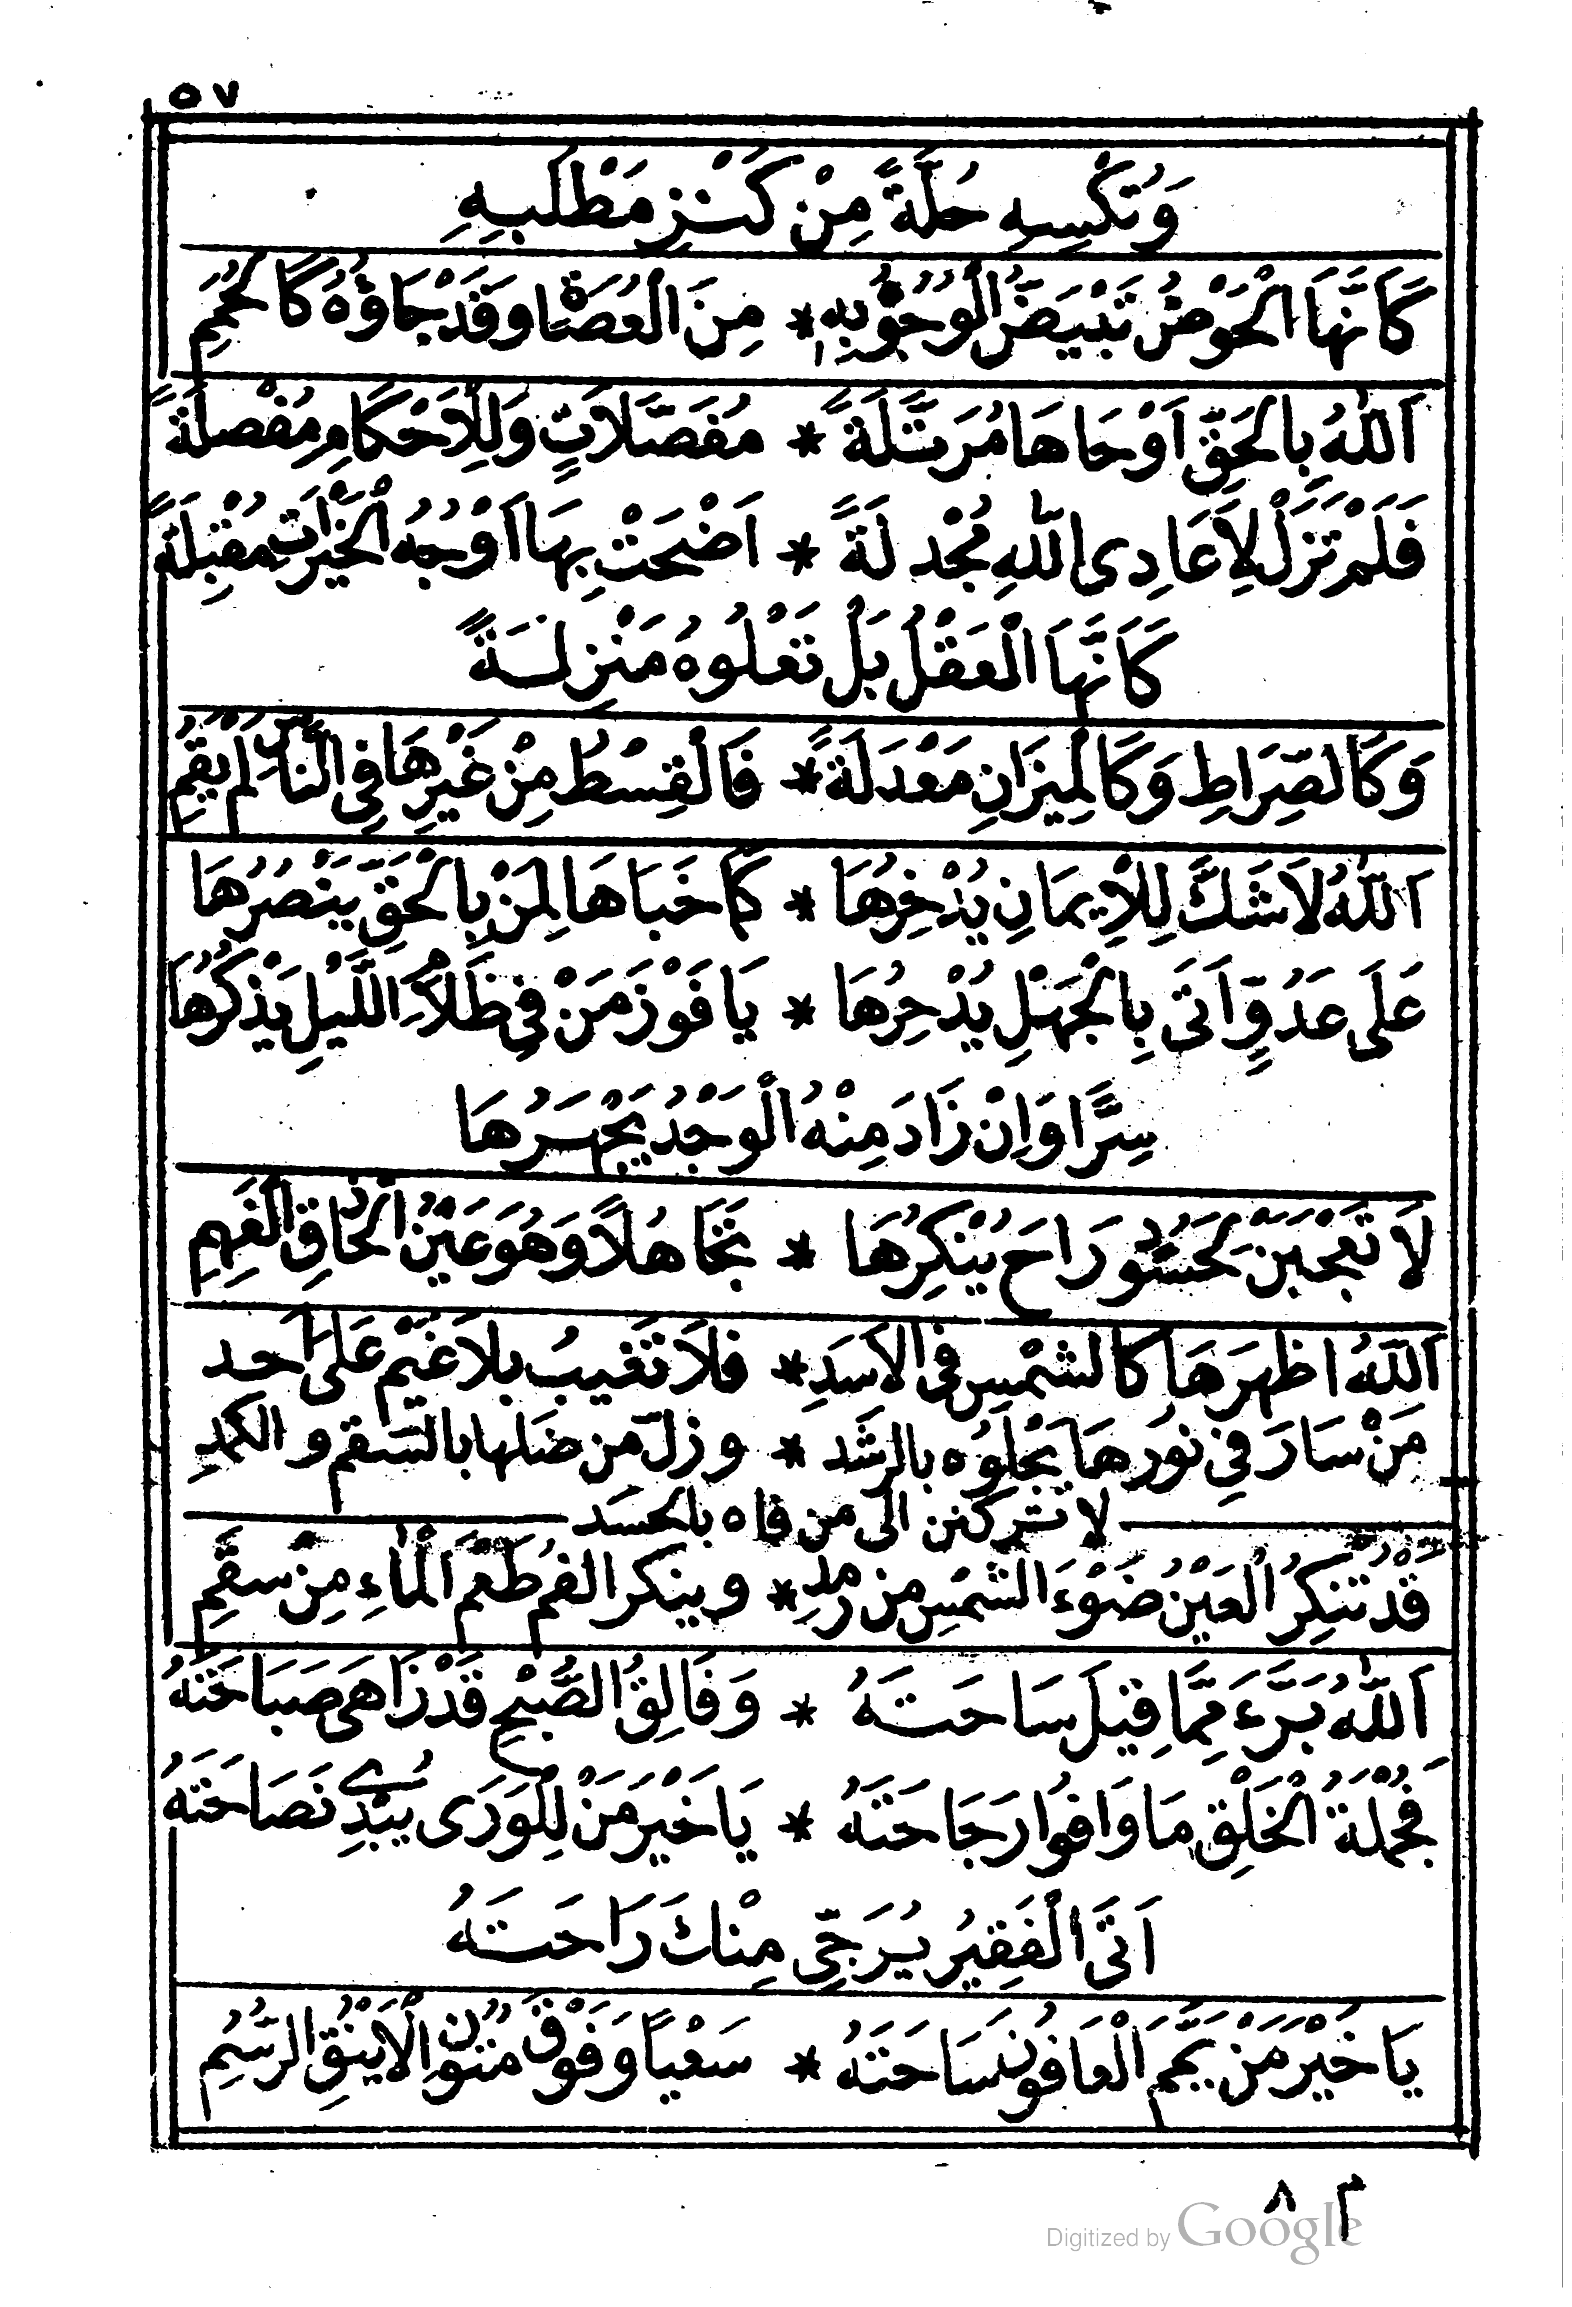 ٥٧
وَتُكْسِهِ حُلَّةً مِنْ كَنْزِ مَطْلَبِهِ
كَأَنَّهَا الْحَوْضُ تَبْيَضُّ الْوُجُوْبُهِ * مِنَ الْعُصَاةِ وَقَدْ جَاؤُهُ كَالْحُمَمِ
اَللّٰهُ بِالْحَقِّ اَوْحَاهَا مُرَتَّلَةً * مُفَصَّلَاتٍ وَلِلْاَحْكَامِ مُفْصِلَةً
فَلَمْ تَزَلْ لِاَعَادِى اللّٰهِ مُجْدِلَةً * اَضْحَتْ بِهَا اَوْجُهُ الْخَيْرَاتِ مُقْبِلَةً
كَاَنَّهَا الْعَقْلُ بَلْ تَعْلُوهُ مَنْزِلَةً
وَكَالصِّرَاطِ وَكَالْمِيْزَانِ مَعْدَلَةً * فَالْقِسْطُ مِنْ غَيْرِهَا فِى النَّاسِ لَمْ يَقُمِ
اَللّٰهُ لَا شَكَّ لِلْاِيمَانِ يُذْخِرُهَا * كَمَا خَبَاهَا لِمَنْ بِالْحَقِّ يَنْصُرُهَا
عَلَى عَدُوٍّ اَتَى بِالْجَهْلِ يُدْحِرُهَا * يَا فَوْزَ مَنْ فِى ظَلَامِ اللَّيْلِ يَذْكُرُهَا
سِرًّا وَاِنْ زَادَ مِنْهُ الْوَجْدُ يَجْهَرُهَا
لَا تَعْجَبَنْ لِحَسُوْدٍ رَاحَ يُنْكِرُهَا * تَجَاهُلًا وَهُوَ عَيْنُ الْحَاذِقِ الْفَهِمِ
اَللّٰهُ اظْهَرَهَا كَالشَّمْسِ فِى الْاَسَدِ * فَلَا تَغِيبُ بِلَا غَيْمٍ عَلَى اَحَد
مَنْ سَارَ فِى نُورِهَا يَجْلُوْهُ بِالرَّشَد * وزلّ من ضلها بالسّقم و الكمدِ
لا تركنن الى من فاه بالحسَد
قَدْ تُنْكِرُ الْعَيْنُ ضَوْءَ الشَّمْسِ مِنْ رمدٍ * وينكر الفمُ طَعْمَ الْمَاءِ مِنْ سقَمِ
اَللّٰهُ بَرَّءَ مِمَّا قِيلَ سَاحَتَهُ * وَفَالِقُ الصُّبْحِ قَدْ زَاهَى صَبَاحَتَهُ
فَجُمْلَةُ الْخَلْقِ مَا وَافُوا رَجَاحَتَهُ * يَا خَيْرَ مَنْ لِلْوَرَى يُبْدِى نَصَاحَتَهُ
اَتَى الْفَقِيرُ يُرَجِّى مِنْكَ رَاحَتَهُ
يَا خَيْرَ مَنْ يَمَّمَ الْعَافُونَ سَاحَتَهُ * سَعْيًا وَفَوْقَ مُتُوْنِ الْاَيْنُقِ الرُّسُمِ
م ٨
Digitized by Google